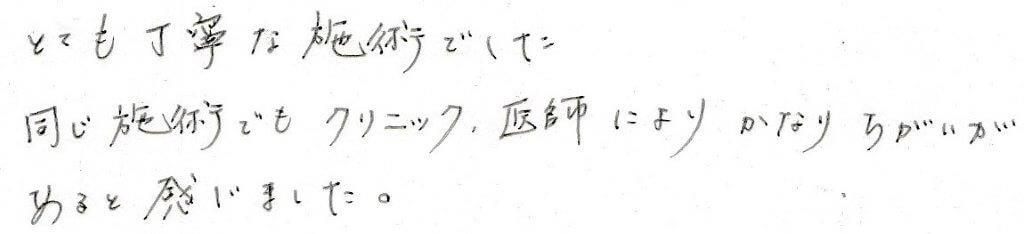 とても丁寧な施術でした
同じ施術でもクリニック、医師によりかなりちがいが
あると感じました。